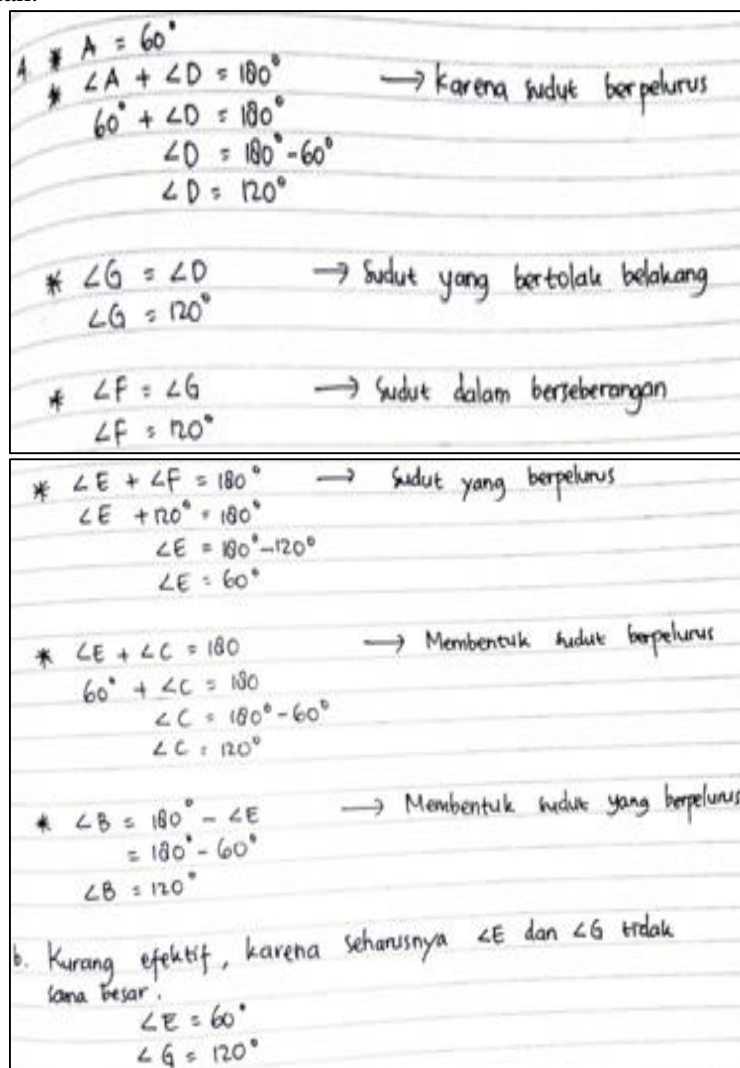 4. * A = 60°
* ∠A + ∠D = 180° → Karena sudut berpelurus
60° + ∠D = 180°
∠D = 180° - 60°
∠D = 120°
* ∠G = ∠D → Sudut yang bertolak belakang
∠G = 120°
* ∠F = ∠G → Sudut dalam berseberangan
∠F = 120°
* ∠E + ∠F = 180° → Sudut yang berpelurus
∠E + 120° = 180°
∠E = 180° - 120°
∠E = 60°
* ∠E + ∠C = 180 → Membentuk sudut berpelurus
60° + ∠C = 180
∠C = 180° - 60°
∠C = 120°
* ∠B = 180° - ∠E → Membentuk sudut yang berpelurus
= 180° - 60°
∠B = 120°
b. Kurang efektif, karena seharusnya ∠E dan ∠G tidak
sama besar.
∠E = 60°
∠G = 120°